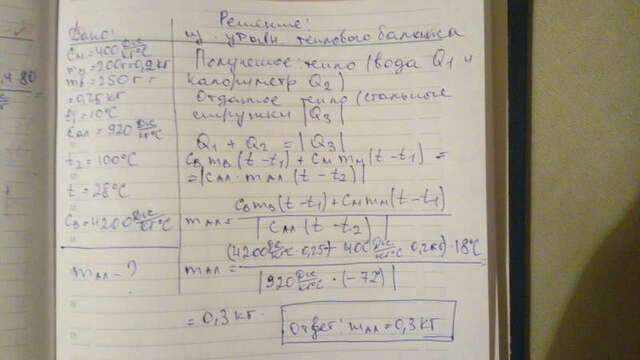 Дано:
См = 400 Дж/кг°С
mм = 200г = 0,2 кг
mв = 250 г =
= 0,25 кг
t1 = 10°С
Сал = 920 Дж/кг°С
t2 = 100°С
t = 28°С
Св = 4200 Дж/кг°С
mал - ?
Решение:
из уравн. теплового баланса
Полученное тепло (вода Q1 и
калориметр Q2)
Отданное тепло (стальные
стружки |Q3|
Q1 + Q2 = |Q3|
Свmв(t - t1) + Смmм(t - t1) =
= |Сал · mал (t - t2)|
mал = Свmв(t - t1) + Смmм(t - t1) / |Сал (t - t2)|
mал = (4200 Дж/кг°С · 0,25) + 400 Дж/кг°С · 0,2кг) · 18°С / |920 Дж/кг°С · (-72)|
= 0,3 кг.
Ответ: mал = 0,3 кг